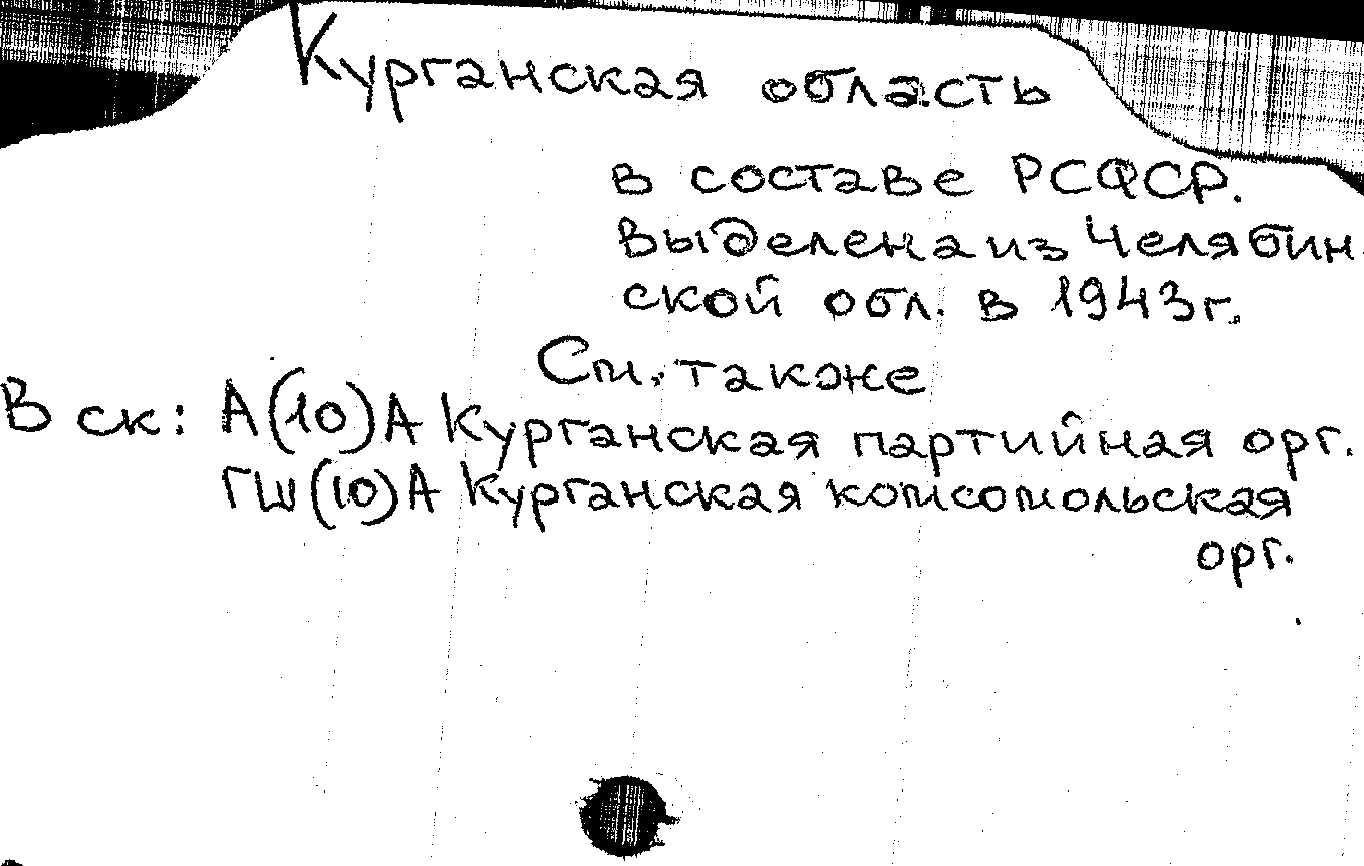 Курганская область
в составе РСФСР.
Выделена из Челябин
ской обл. в 1943г.
См. также
В ск: А(10)А Курганская партийная орг.
ГШ(10)А Курганская комсомольская
орг.